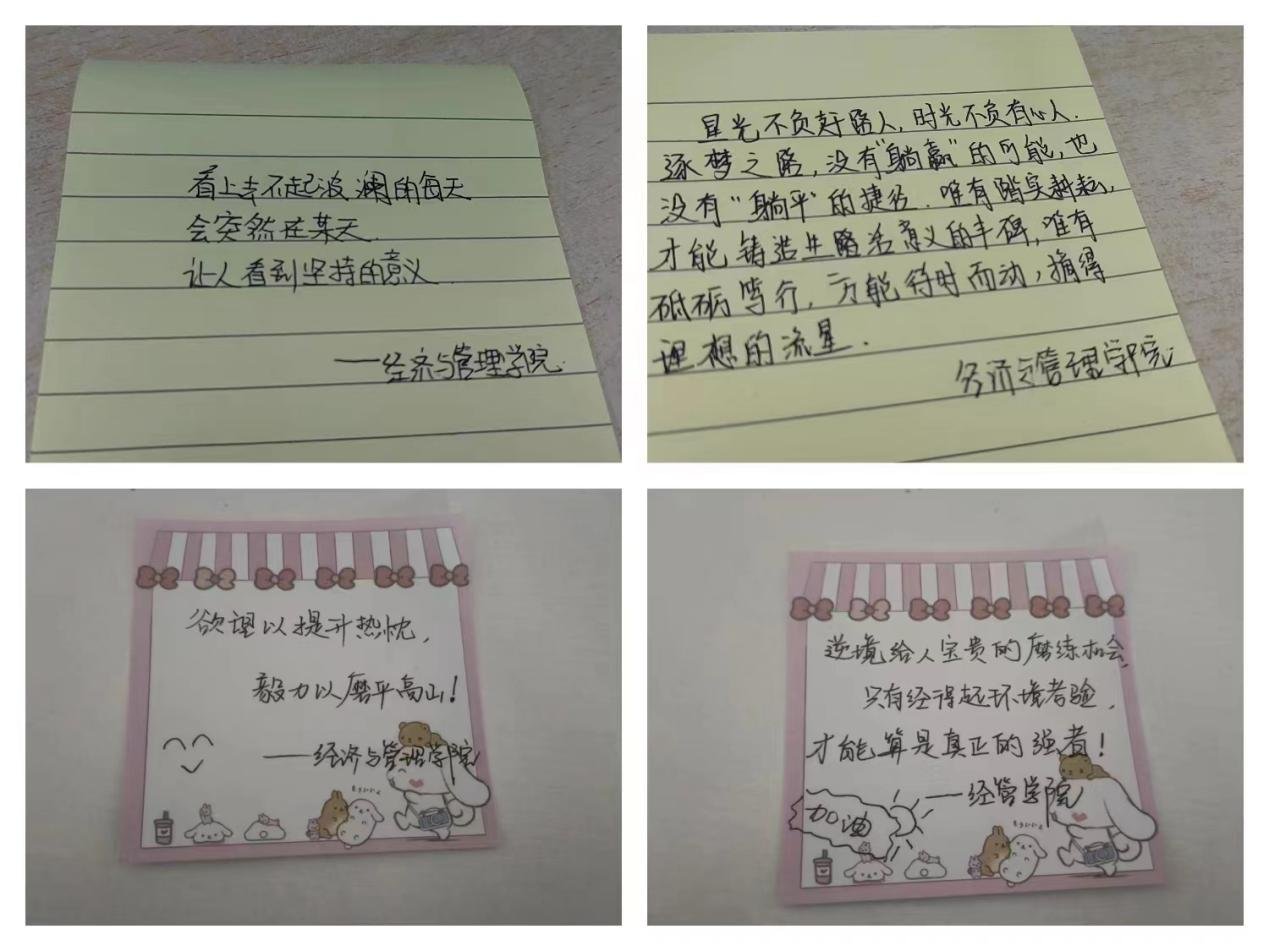 看上去不起波澜的每天
会突然在某天
让人看到坚持的意义
——经济与管理学院
星光不负赶路人,时光不负有心人.
逐梦之路,没有"躺赢"的可能,也
没有"躺平"的捷径.唯有踏实耕耘,
才能铸造生路若意义的丰碑,唯有
砥砺笃行,方能待时而动,摘得
理想的流星.
经济与管理学院
欲望以提升热忱,
毅力以磨平高山!
——经济与管理学院
逆境给人宝贵的磨练机会,
只有经得起环境考验,
才能算是真正的强者!
——经管学院
加油